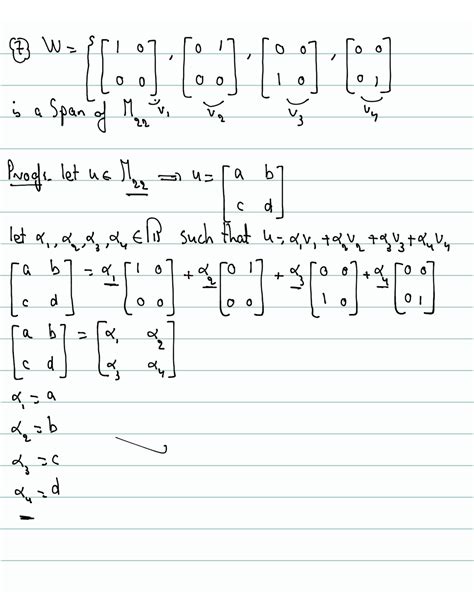 ⑦ W = { [1 0; 0 0], [0 1; 0 0], [0 0; 1 0], [0 0; 0 1]
is a Span of M₂₂ v₁ v₂ v₃ v₄
Proof: let u ∈ M₂₂ ⟹ u = [a b; c d]
let α₁, α₂, α₃, α₄ ∈ ℝ such that u = α₁v₁ + α₂v₂ + α₃v₃ + α₄v₄
[a b; c d] = α₁ [1 0; 0 0] + α₂ [0 1; 0 0] + α₃ [0 0; 1 0] + α₄ [0 0; 0 1]
[a b; c d] = [α₁ α₂; α₃ α₄]
α₁ = a
α₂ = b
α₃ = c
α₄ = d